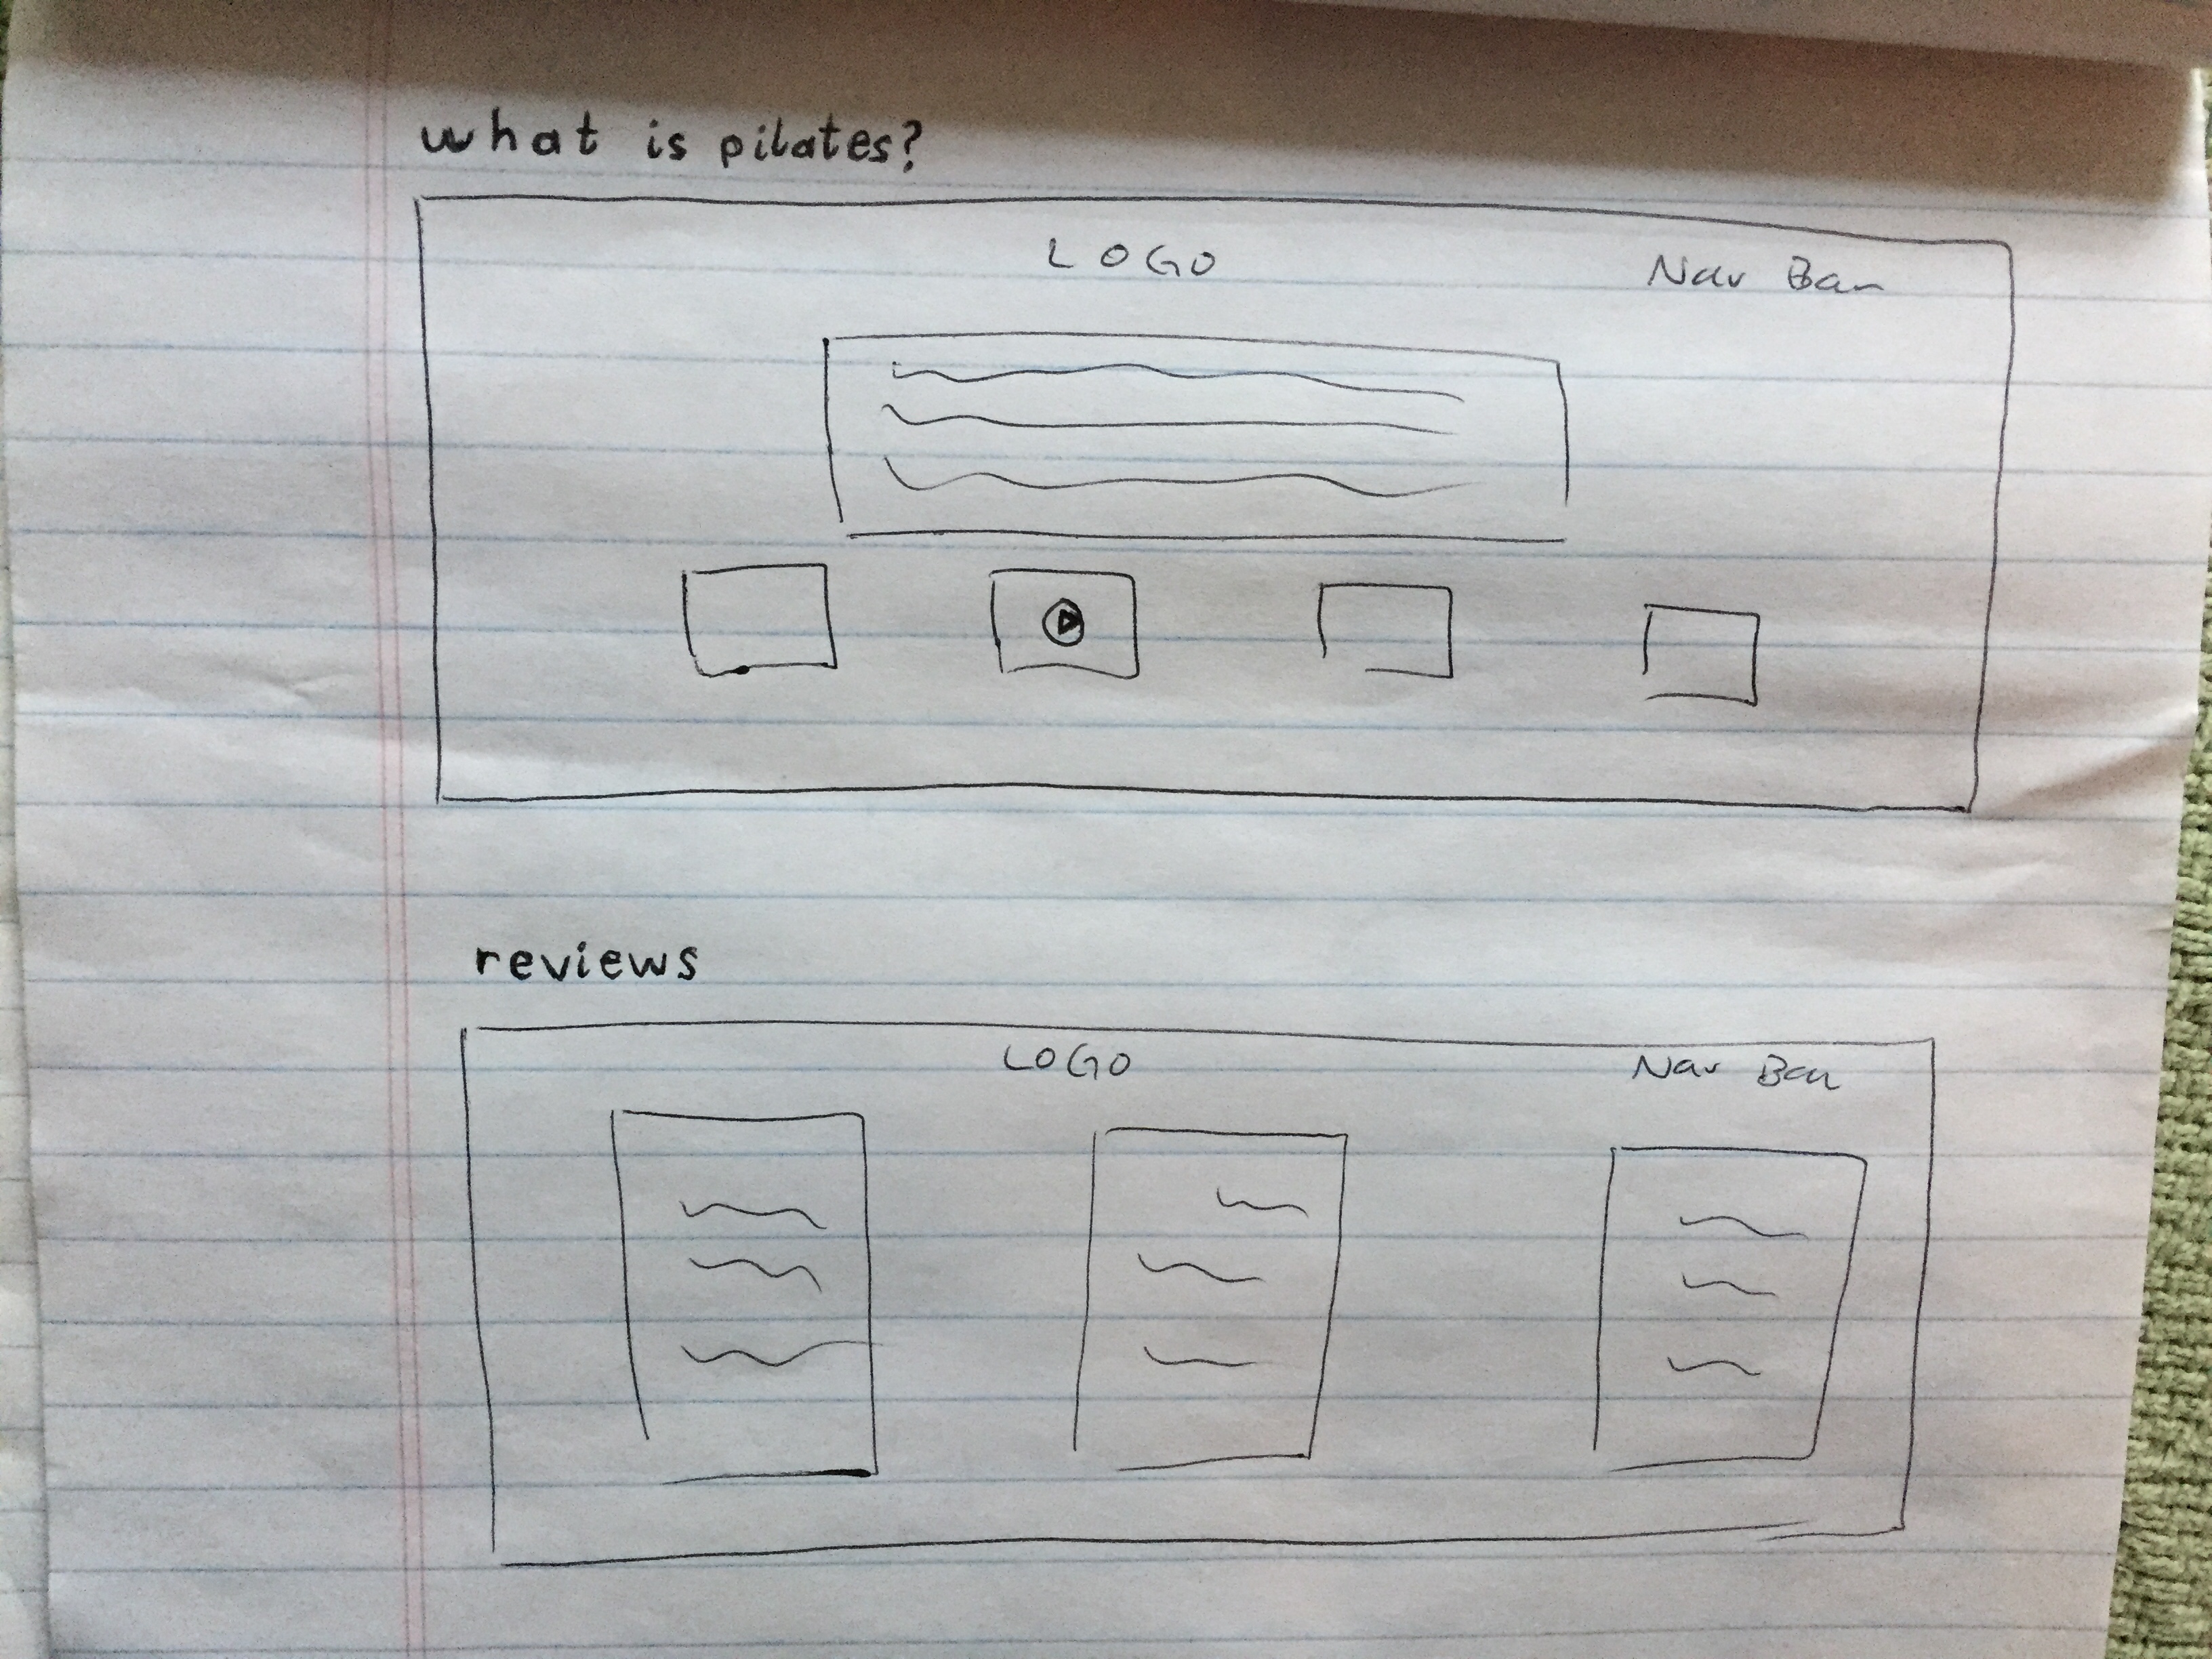 what is pilates?
LOGO
Nav Bar
reviews
LOGO
Nav Bar